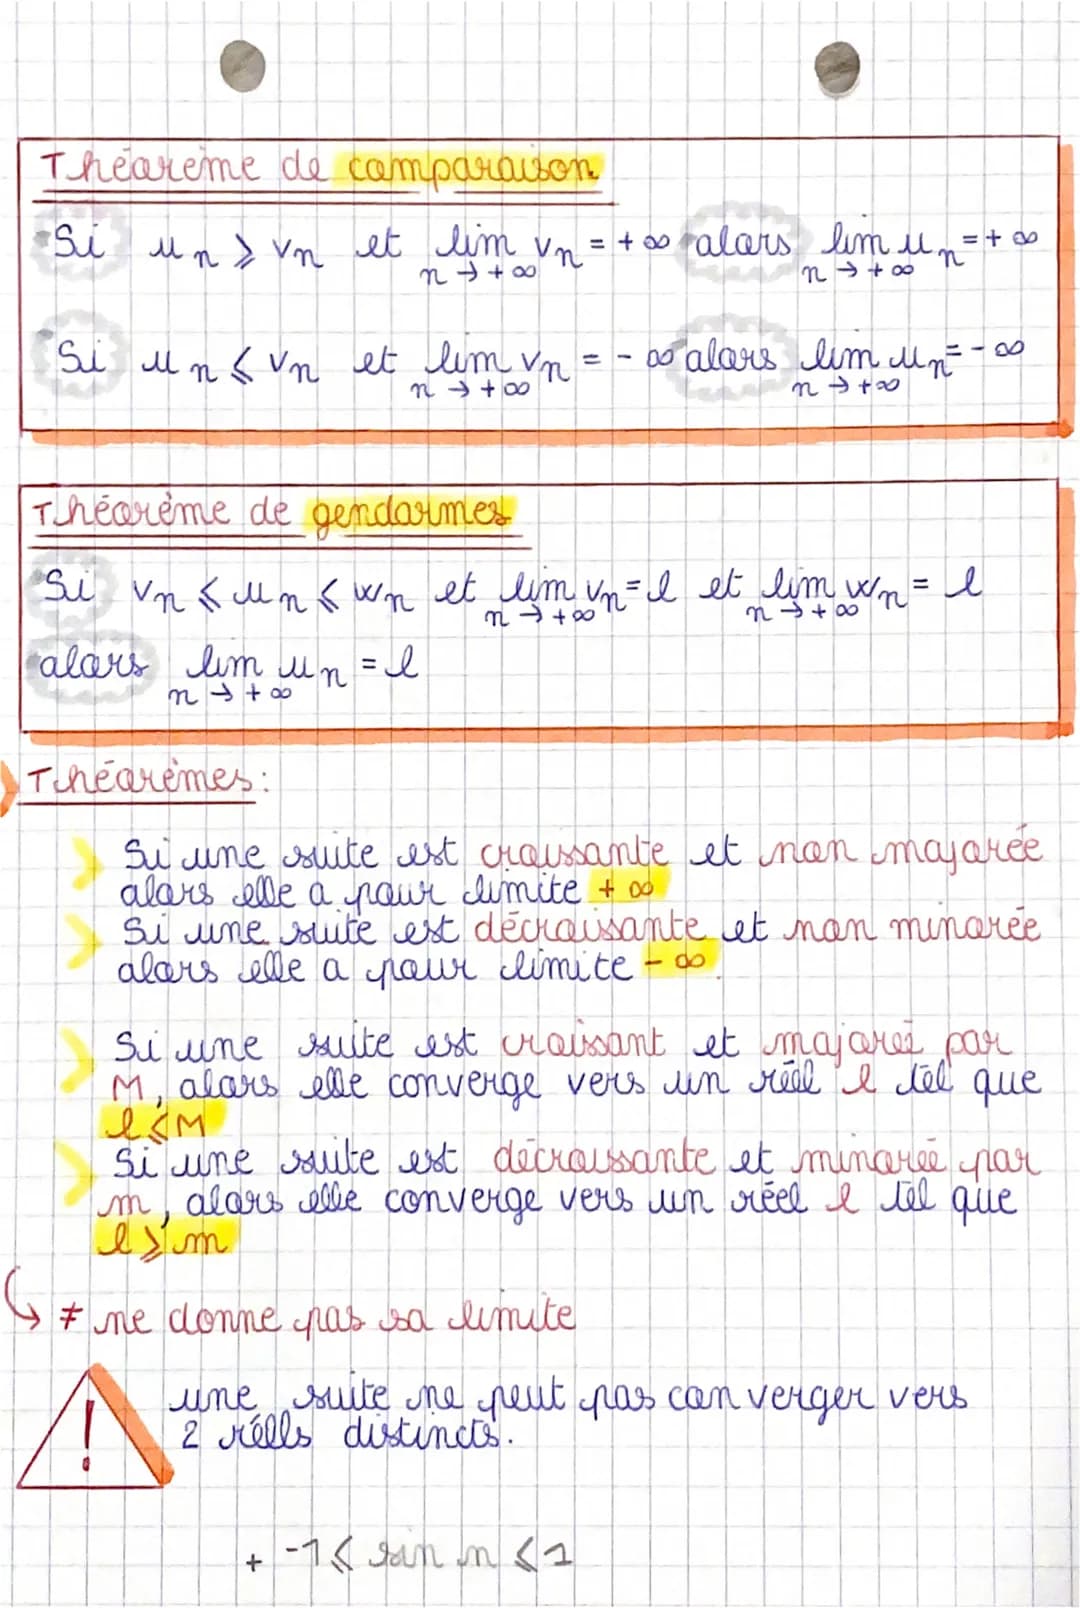 Théoreme de comparaison
Si un ⩾ vn et lim vn = +∞ alors lim un = +∞
n → +∞ n → +∞
Si un ⩽ vn et lim vn = -∞ alors lim un = -∞
n → +∞ n → +∞
Théorème de gendarmes
Si vn ⩽ un ⩽ wn et lim vn = l et lim wn = l
n → +∞ n → +∞
alors lim un = l
n → +∞
Théorèmes :
Si une suite est croissante et non majorée
alors elle a pour limite +∞
Si une suite est décroissante et non minorée
alors elle a pour limite -∞.
Si une suite est croissant et majoreé par
M, alors elle converge vers un réel l tel que
l ⩽ M
Si une suite est décroissante et minoreé par
m, alors elle converge vers un réel l tel que
l ⩾ m
≠ ne donne pas sa limite
! une suite ne peut pas converger vers
2 rélls distincts.
+ -1 ⩽ sin n ⩽ 1